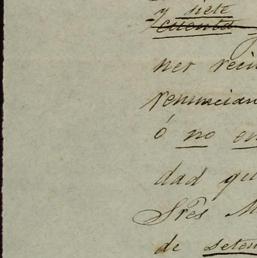 y siete
cuenta
ner reci
renuncian
ó no en
dad qu
Sres M
de seten